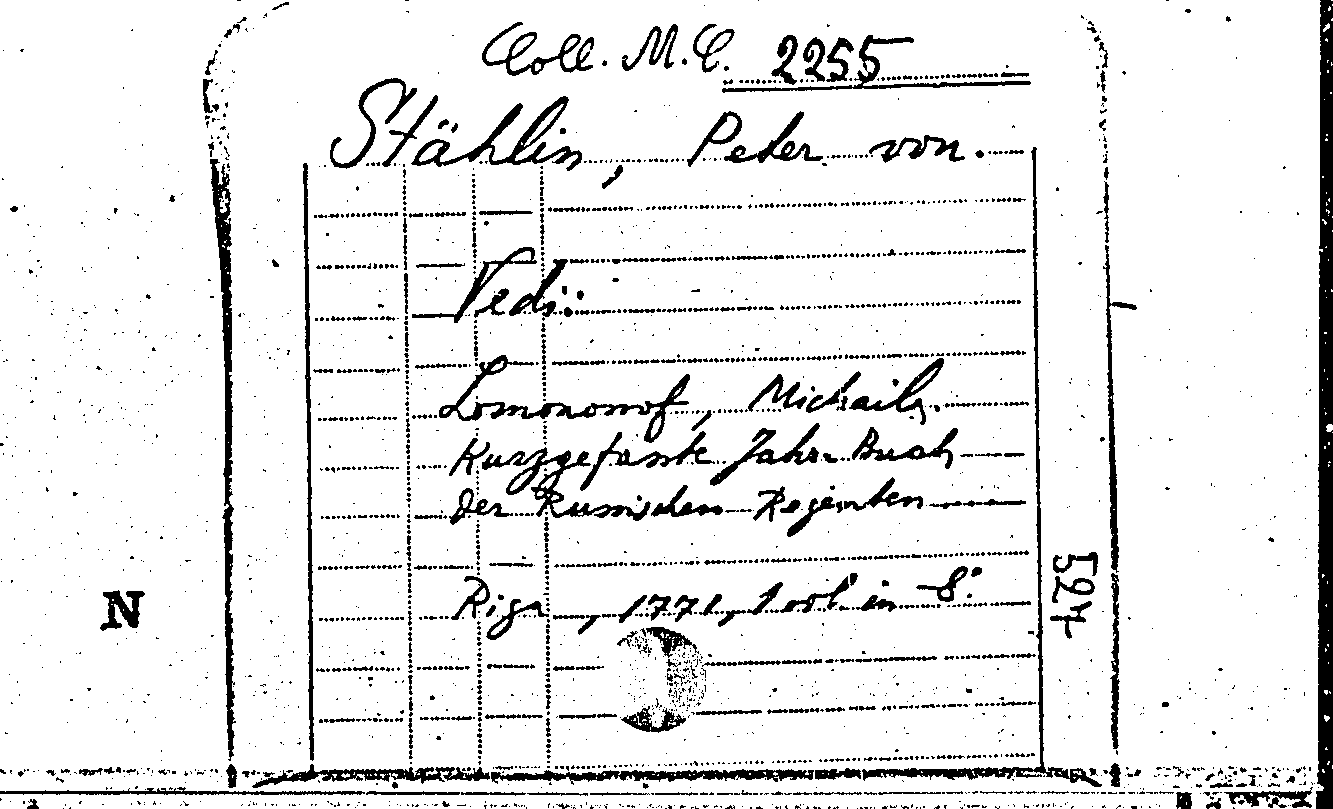 Coll. M. C. 2255
Stählin, Peter von.
Vedi:
Lomonossof, Michaila.
Kurzgefasste Jahr-Buch
der Russischen Regenten
Riga, 1771, 1 vol. in -8.°
N
524